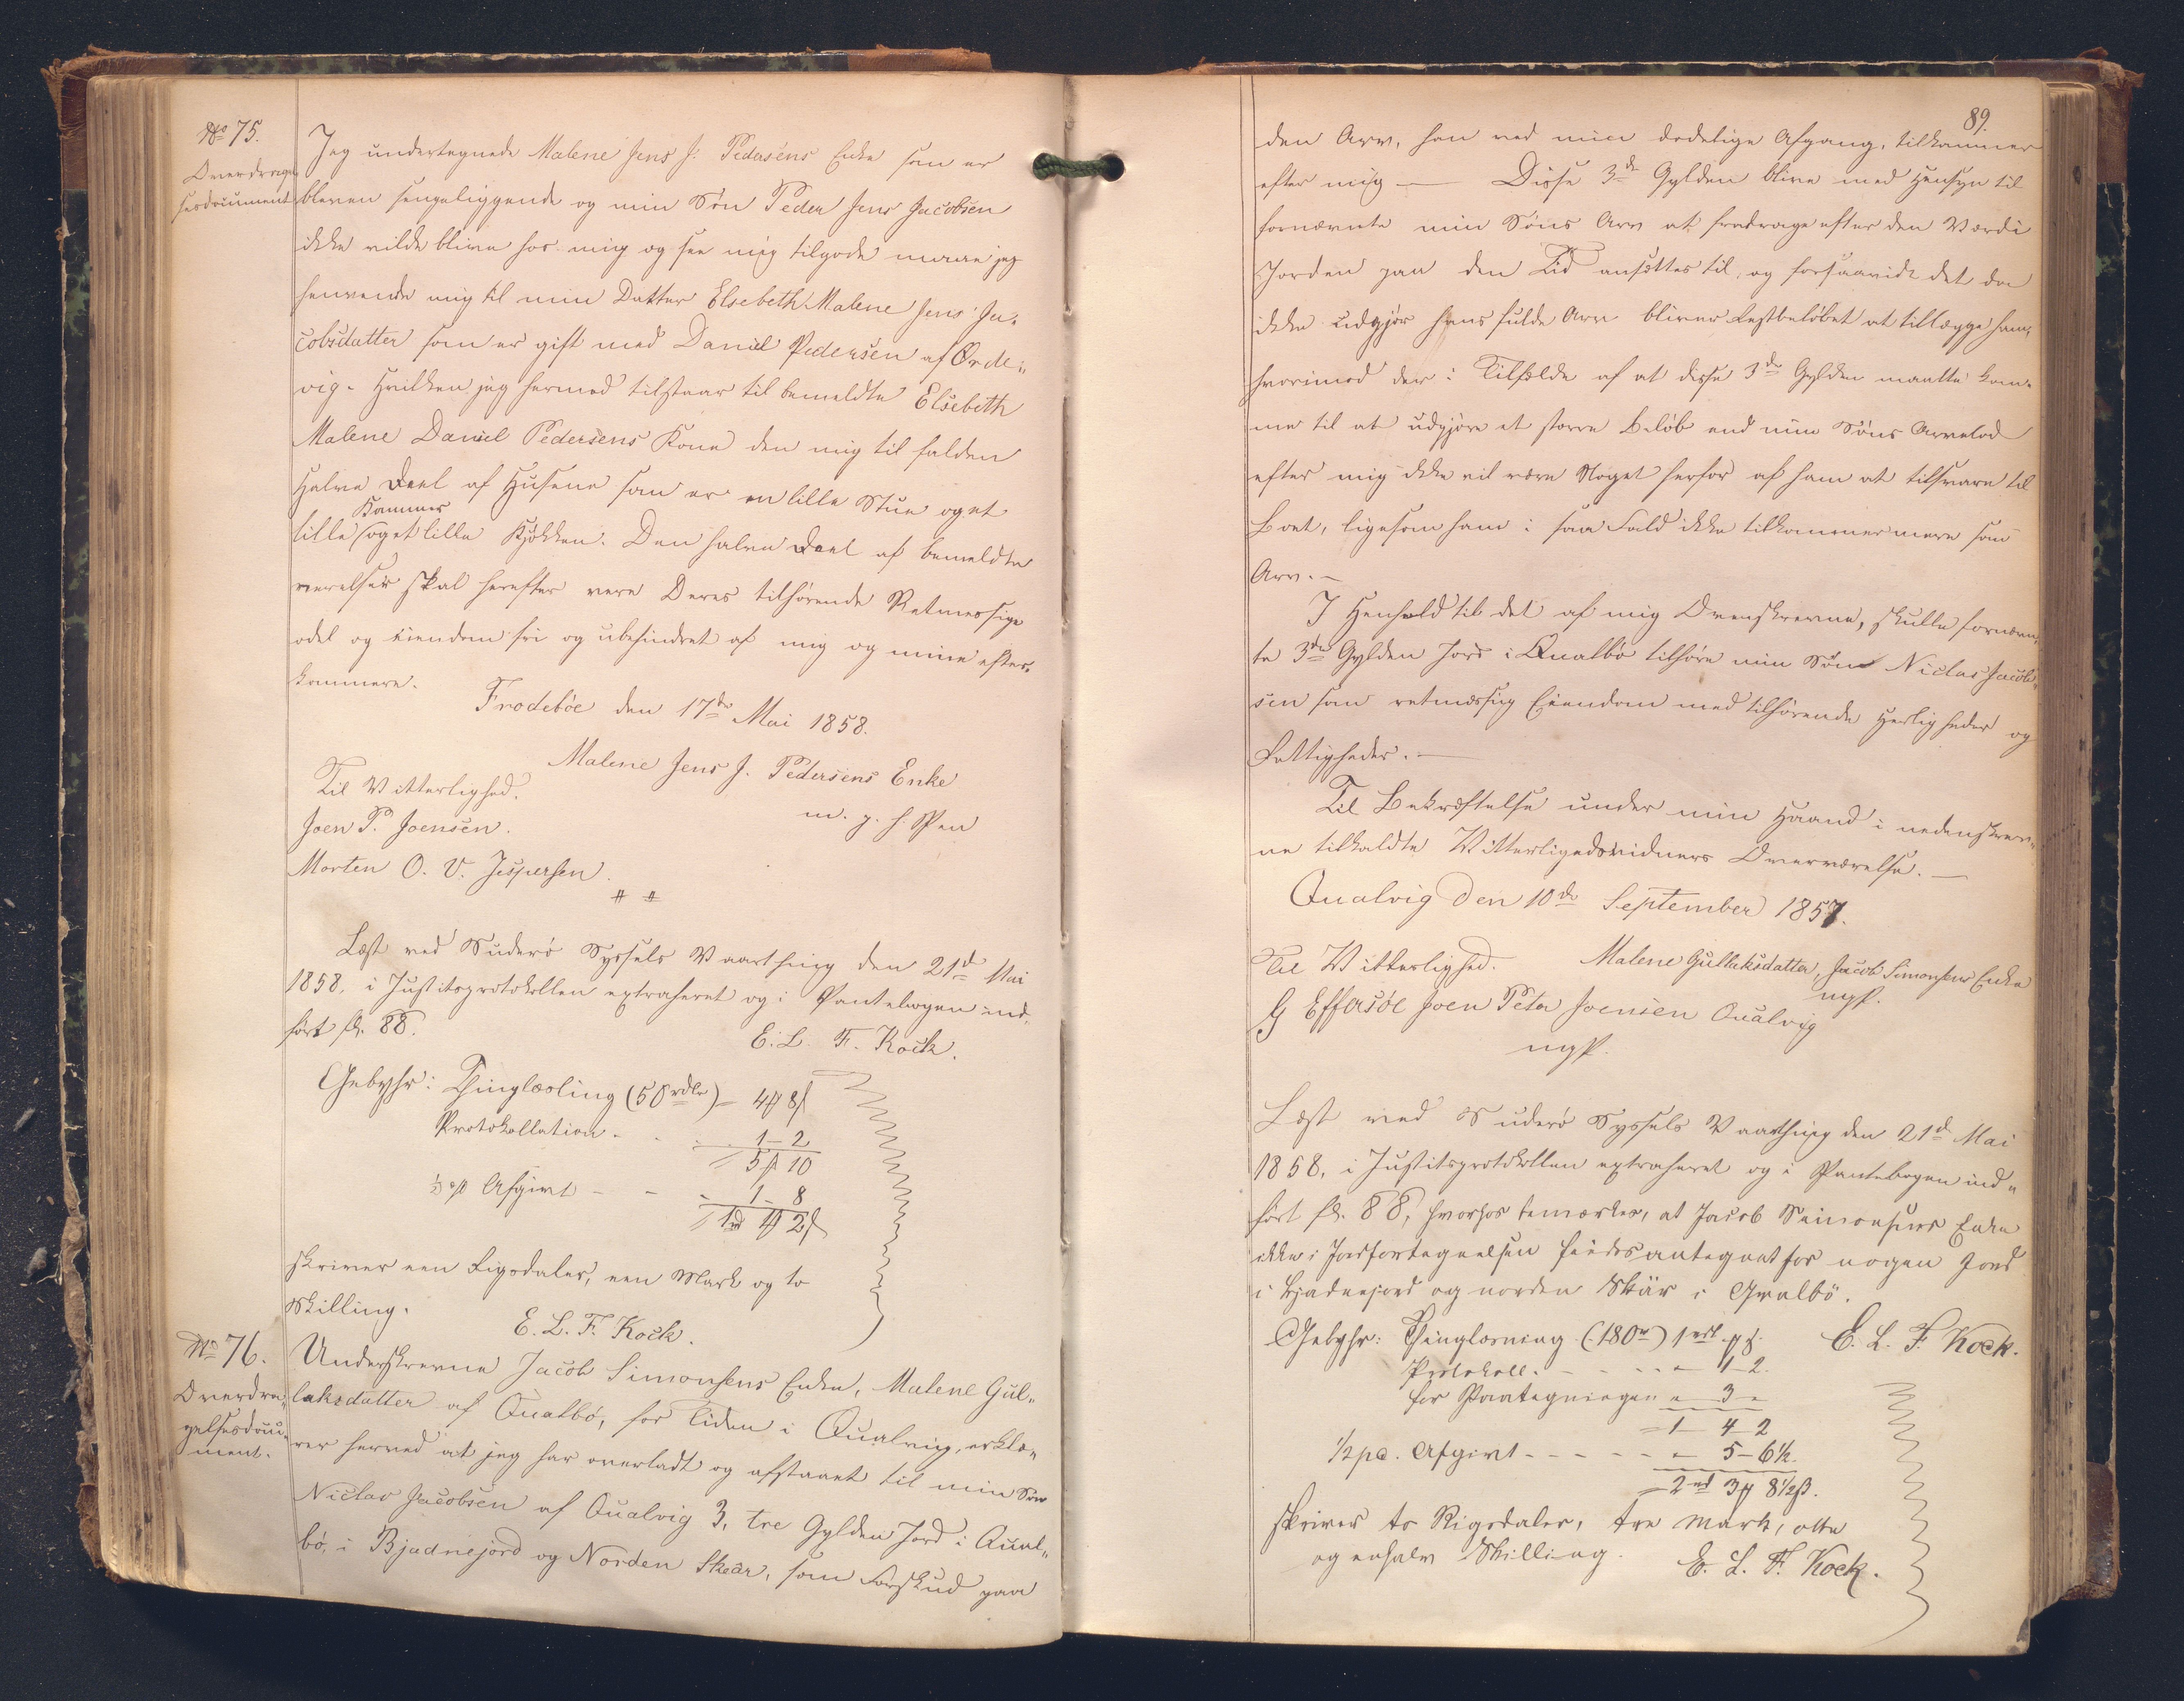 No 75.
Overdragel-
sesdocument
Jeg undertegnede Malene Jens J. Pedersens Enke som er
bleven sengeliggende og min Søn Peder Jens Jacobsen
ikke vilde blive hos mig og see mig tilgode maae jeg
henvende mig til min Datter Elsebeth Malene Jens Ja-
cobsdatter som er gift med Daniel Pedersen af Örde-
vig. Hvilken jeg hermed tilstaar til bemeldte Elsebeth
Malene Daniel Pedersens Kone den mig til falden
Halve Deel af Husene som er en lille Stue og et
lille Kammer og et lille Kjökken. Den halve Deel af bemeldte
verelser skal herefter vere Deres tilhörende Retmessige
odel og eiendom fri og ubehindret af mig og mine efter-
kommere.
Frodeböe den 17de Mai 1858.
Malene Jens J. Pedersens Enke
m. p. f. Pen
Til Vitterlighed.
Joen P. Joensen.
Morten O. V. Jespersen.
# #
Læst ved Suderö Syssels Vaarthing den 21d Mai
1858. i Justitsprotokollen extraheret og i Pantebogen ind-
fört fl. 88.
E. L. F. Kock.
Gebyhr: Thinglæsling (50 rdlr) - 4 ₻ 8 ß
Protokollation - - 1 - 2
5 ₻ 10
½ pC Afgivt - - - 1 - 8
1 rd 1 ₻ 2 ß
skriver een Rigsdaler, een Mark og to
Skilling.
E. L. F. Kock.
No 76.
Overdra-
gelsesdocu-
ment.
Underskrevne Jacob Simonsens Enke, Malene Gul-
laksdatter af Qualbö, for Tiden i Qualvig, erklæ-
rer herved at jeg har overladt og afstaaet til min Sön
Niclas Jacobsen af Qualvig 3, tre Gylden Jord i Qual-
bö, i Bjadnejord og Norden Skeär, som Forskud paa
89.
den Arv, han ved min dodelige Afgang, tilkommer
efter mig — Disse 3de Gylden blive med Hensyn til
fornævnte min Söns Arv at fradrage efter den Værdi
Jorden paa den Tid ansættes til, og forsaavidt det da
ikke udgjör hans fulde Arv bliver Restbelöbet at tillægge ham,
hvorimod der i Tilfælde af at disse 3de Gylden maatte kom-
me til at udgjöre et större Belöb end min Söns Arvelod
efter mig ikke vil være Noget herfor af ham at tilsvare til
Boet, ligesom ham i saa Fald ikke tilkommer mere som
Arv. -
I Henhold til det af mig Ovenskrevne, skulle fornævn-
te 3de Gylden Jord i Qualbö tilhöre min Sön Niclas Jacob-
sen som retmæssig Eiendom med tilhörende Herligheder og
Rettigheder. —
Til Bekræftelse under min Haand i nedenskrev-
ne tilkaldte Vitterligedsvidners Overværelse. —
Qualvig den 10de September 1857.
Malene Gullaksdatter, Jacob Simonsens Enke
mgP.
Til Vitterlighed.
G Effersöe Joen Peter Joensen Qualvig
mgP.
Læst ved Suderö Syssels Vaarthing den 21d Mai
1858, i Justitsprotokollen extraheret og i Pantebogen ind-
fört fl. 88, hvorhos bemærkes, at Jacob Simonsens Enke
ikke i Jordfortegnelsen findes antegnet for nogen Jord
i Bjadnejord og norden Skär i Qvalbö.
E. L. F. Kock.
Gebyhr: Thinglæsning (180 rd) 1 rdl. „ ₻ „ ß.
Protokoll. - - - - „ 1 - 2.
for Paategningen „ 3 „
= 1 - 4 - 2
1/2 pc. Afgivt - - - - - „ 5 - 6½.
= 2 rd 3 ₻ 8 1/2 ß.
skriver to Rigsdaler, tre Mark, otte
og enhalv Skilling.
E. L. F. Kock.